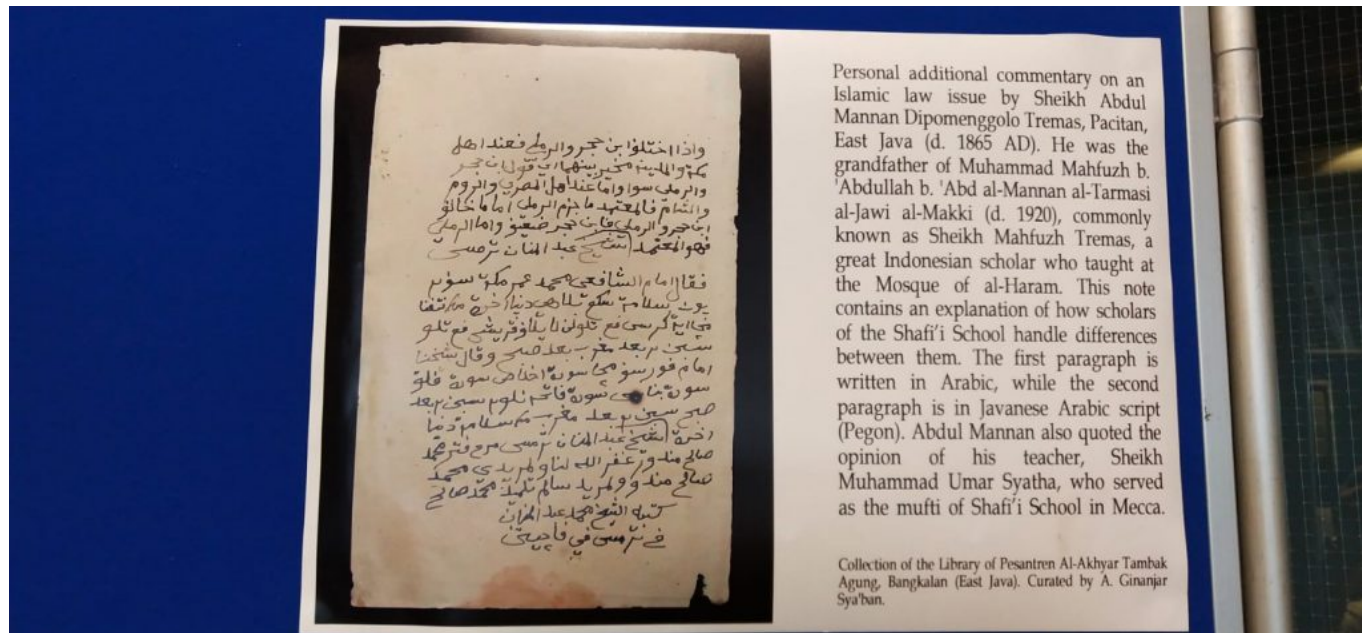 واذا اختلفوا ابن حجر والرملي فعند اهل
مكة والمدينة مخير بينهما اي قول ابن حجر
والرملي سوا واما عند اهل المصري والروم
والشام فالمعتمد ما جزم الرملي اما ما خالف
ابن حجر والرملي فابن حجر ضعيف واما الرملي
فهو المعتمد الشيخ عبد المنان ترمسي
فقال امام الشافعي محمد عمر مكة
سلامة دنيا اخرة
بعد مغرب بعد صبح وقال شيخنا
امام سورة اخلاص سورة
سورة سورة فاتحة بعد
صبح بعد مغرب سلامة دنيا
اخرة الشيخ عبد المنان ترمسي محمد
صالح غفر الله لنا ولمريدي محمد
صالح ولمريد سالم تلميذ محمد صالح
كتبه الشيخ محمد عبد المنان
في ترمسي في فاچيتن
Personal additional commentary on an
Islamic law issue by Sheikh Abdul
Mannan Dipomenggolo Tremas, Pacitan,
East Java (d. 1865 AD). He was the
grandfather of Muhammad Mahfuzh b.
'Abdullah b. 'Abd al-Mannan al-Tarmasi
al-Jawi al-Makki (d. 1920), commonly
known as Sheikh Mahfuzh Tremas, a
great Indonesian scholar who taught at
the Mosque of al-Haram. This note
contains an explanation of how scholars
of the Shafi'i School handle differences
between them. The first paragraph is
written in Arabic, while the second
paragraph is in Javanese Arabic script
(Pegon). Abdul Mannan also quoted the
opinion of his teacher, Sheikh
Muhammad Umar Syatha, who served
as the mufti of Shafi'i School in Mecca.
Collection of the Library of Pesantren Al-Akhyar Tambak
Agung, Bangkalan (East Java). Curated by A. Ginanjar
Sya'ban.